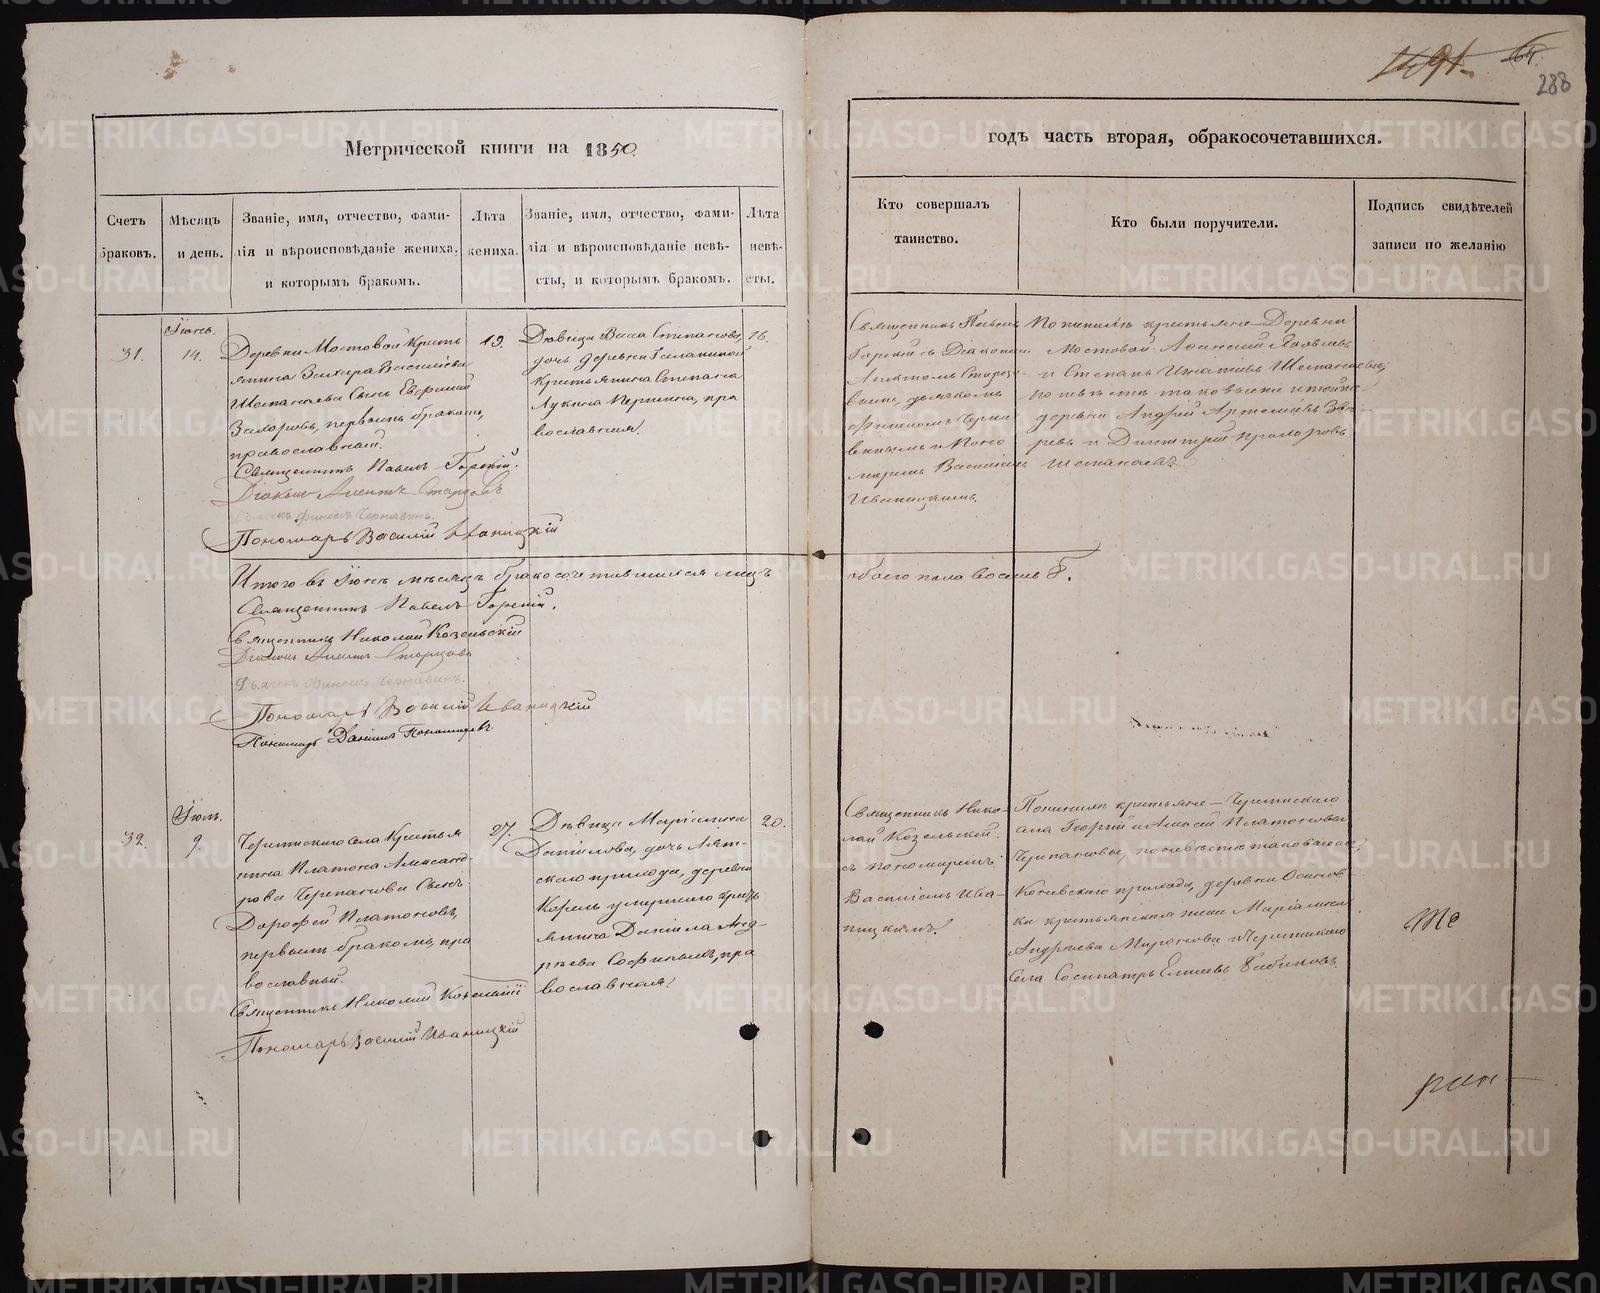 1491. 64.
288
Метрической книги на 1850.
годъ часть вторая, обракосочетавшихся.
Счетъ браковъ.
Мѣсяцъ и день.
Званіе, имя, отчество, фами-
лія и вѣроисповѣданіе жениха,
и которымъ бракомъ.
Лѣта
жениха.
Званіе, имя, отчество, фами-
лія и вѣроисповѣданіе невѣ-
сты, и которымъ бракомъ.
Лѣта
невѣ-
сты.
Кто совершалъ
таинство.
Кто были поручители.
Подпись свидѣтелей
записи по желанію
31.
Іюнь.
14.
Деревни Мостовой Кресть
янина Захара Васильева
Шеманаева Сынъ Евфимій
Захаровъ, первымъ бракомъ,
православный.
Священникъ Павелъ Горскій.
Діаконъ Старцовъ
Финеесъ Чернавинъ.
Пономарь Василій Иваницкій
19.
Дѣвица Васса Степанова,
дочь деревни Галаниной
Крестьянина Степана
Лукина Першина, пра
вославная.
16.
Священникъ Павелъ
Горскій съ Діакономъ
Старцо-
вымъ, дьячкомъ
Финеесомъ Черна
винымъ и Поно
маремъ Василіемъ
Иваницкимъ.
По женихѣ крестьяне Деревни
Мостовой Афанасій Яковлевъ
и Степанъ Игнатіевъ Шеманаевы;
по невѣстѣ таковыежъ и тойже
деревни Андрей Артемьевъ Звѣ
ревъ и Димитрій Прохоровъ
Шеманаевъ.
Итого въ Іюнѣ мѣсяцѣ бракосочетавшихся лицъ
обоего пола восемь 8.
Священникъ Павелъ Горскій.
Священникъ Николай Козельскій
Діаконъ Старцовъ
Дьячекъ Финеесъ Чернавинъ.
Пономарь Василій Иваницкій
Пономарь Даніилъ Пономаревъ
32.
Іюль.
9.
Черемисскаго села Крестья
нина Платона Александ-
рова Черепанова Сынъ
Дорофей Платоновъ,
первымъ бракомъ, пра
вославный.
Священникъ Николай Козельскій
Пономарь Василій Иваницкій
27.
Дѣвица Маріамна
Даніилова, дочь Аят-
скаго прихода, деревни
Корелъ умершаго кресть
янина Даніила Анд-
реева Софьиныхъ, пра
вославная.
20.
Священникъ Нико-
лай Козельскій
съ пономаремъ
Василіемъ Ива-
ницкимъ.
По женихѣ крестьяне Черемисскаго
села Георгій и Алексѣй Платоновы
Черепановы, по невѣстѣ таковыежъ;
Коневскаго прихода, деревни Осинов
ки крестьянская жена Маріамна
Андреева Миронова и Черемисскаго
села Сосипатръ Елисеевъ Бабиковъ.